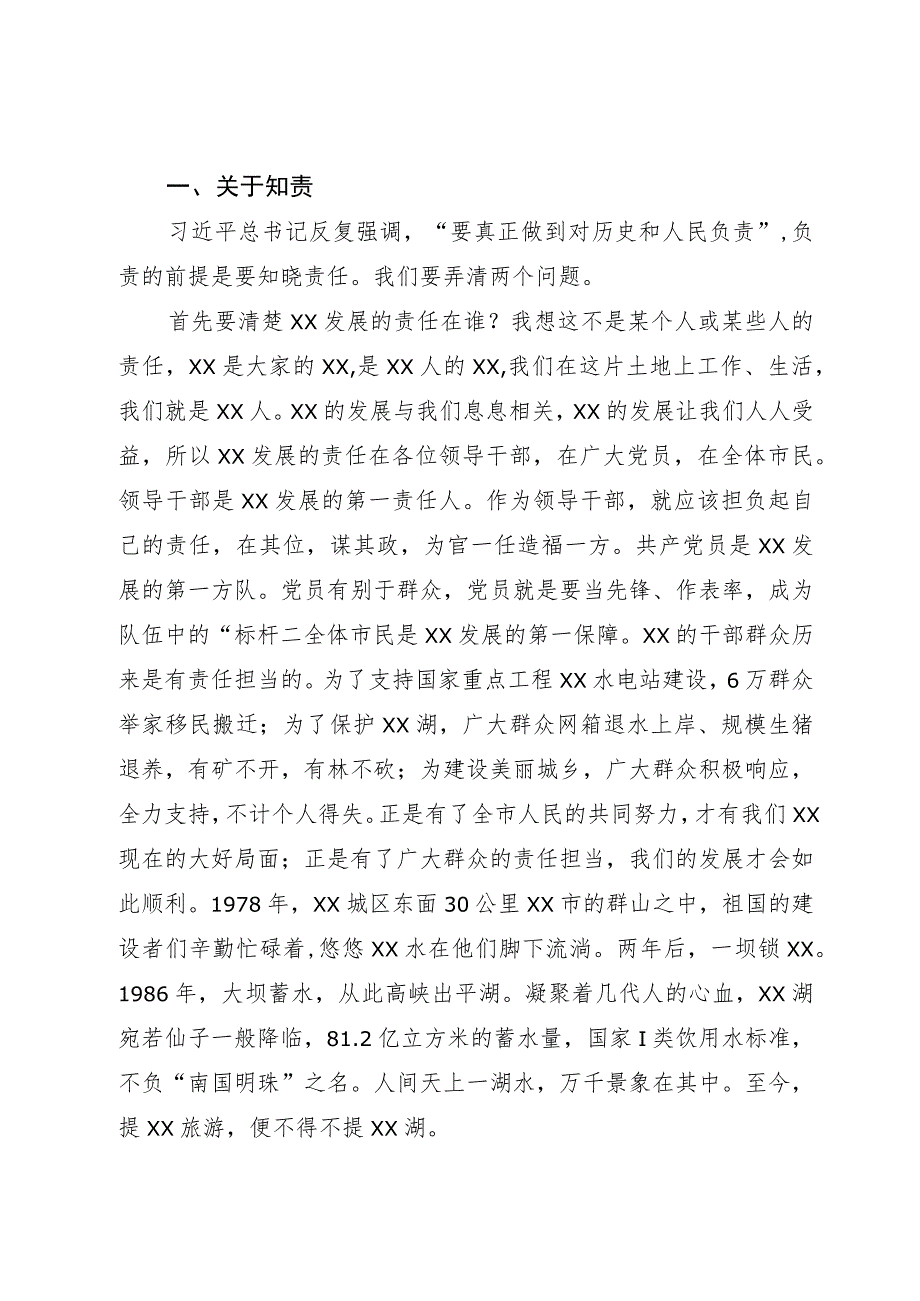 一、关于知责
习近平总书记反复强调，“要真正做到对历史和人民负责”,负
责的前提是要知晓责任。我们要弄清两个问题。
首先要清楚 XX 发展的责任在谁？我想这不是某个人或某些人的
责任，XX 是大家的 XX,是 XX 人的 XX,我们在这片土地上工作、生活，
我们就是 XX 人。XX 的发展与我们息息相关，XX 的发展让我们人人受
益，所以 XX 发展的责任在各位领导干部，在广大党员，在全体市民。
领导干部是 XX 发展的第一责任人。作为领导干部，就应该担负起自
己的责任，在其位，谋其政，为官一任造福一方。共产党员是 XX 发
展的第一方队。党员有别于群众，党员就是要当先锋、作表率，成为
队伍中的“标杆二全体市民是 XX 发展的第一保障。XX 的干部群众历
来是有责任担当的。为了支持国家重点工程 XX 水电站建设，6 万群众
举家移民搬迁；为了保护 XX 湖，广大群众网箱退水上岸、规模生猪
退养，有矿不开，有林不砍；为建设美丽城乡，广大群众积极响应，
全力支持，不计个人得失。正是有了全市人民的共同努力，才有我们 XX
现在的大好局面；正是有了广大群众的责任担当，我们的发展才会如
此顺利。1978 年，XX 城区东面 30 公里 XX 市的群山之中，祖国的建
设者们辛勤忙碌着,悠悠 XX 水在他们脚下流淌。两年后，一坝锁 XX。
1986 年，大坝蓄水，从此高峡出平湖。凝聚着几代人的心血，XX 湖
宛若仙子一般降临，81.2 亿立方米的蓄水量，国家 I 类饮用水标准，
不负“南国明珠”之名。人间天上一湖水，万千景象在其中。至今，
提 XX 旅游，便不得不提 XX 湖。